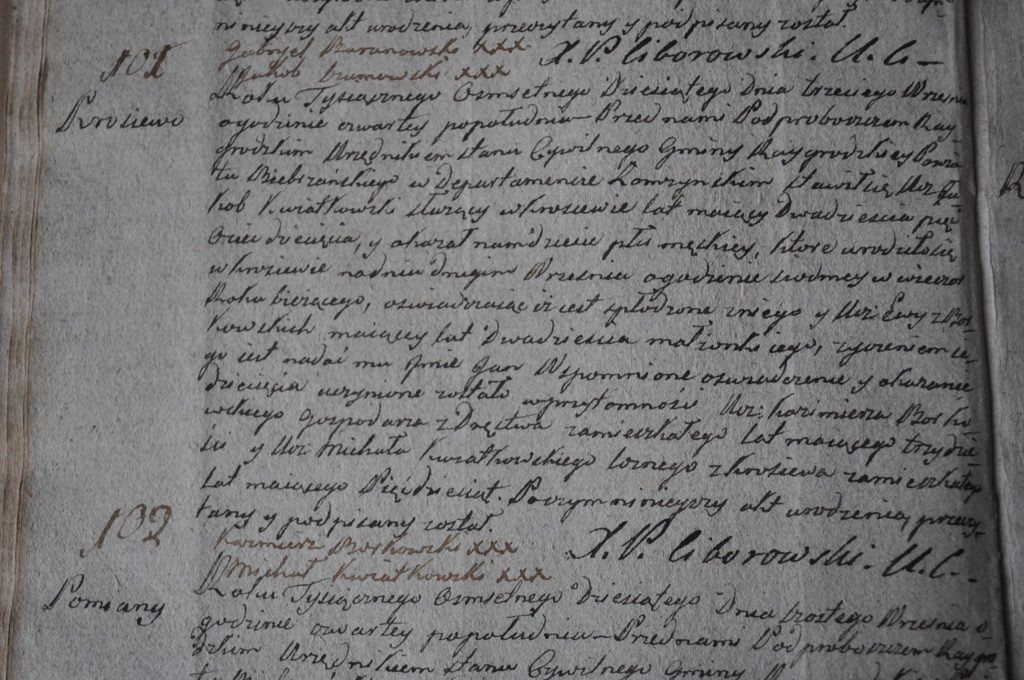 ninieyszy akt urodzenia, przeczytany y podpisany został.
Gabryel Baranowski xxx X. P. Ciborowski. U. C.
Jakob xxx
101
Krosiewo
Roku Tysiącznego Osmsetnego Dziesiątego Dnia trzeciego Wrzesnia
ogodzinie czwartey popołudniu – Przed nami Podproboszczem Ray
grodzkim Urzędnikiem stanu Cywilnego Gminy Raygrodzkiey Powia
tu Biebrzańskiego w Departamencie Łomzynskim stawił się Ur: Ja
kob Kwiatkowski służący w Krosiewie lat maiący Dwadziescia pięć
Ociec dziecięcia, y okazał nam dziecie płci męzkiey, ktore urodziło się
w Krosiewie na dniu drugim Wrzesnia ogodzinie siodmey w wieczor
Roku biezącego, oswiadczaiąc iz iest spłodzone z niego y Ur: Ewy z Bor
kowskich maiącey lat Dwadziescia małzonki iego, zyczeniem ie
go iest nadać mu Jmie Jan Wspomnione oswiadczenie y okazanie
dziecięcia uczynione zostało w przytomnosci Ur: Kazimierza Borko
wskiego gospodarza z Dręstwa zamieszkałego lat maiącego trzydzie
sci y Ur: Michała Kwiatkowskiego z Krosiewa zamieszkałego
lat maiącego Pięćdziesiąt. Poczym ninieyszy akt urodzenia, przeczy
tany y podpisany został.
Kazimierz Borkowski xxx X. P. Ciborowski. U. C.
Michał Kwiatkowski xxx
102
Pomiany
Roku Tysiącznego Osmsetnego Dziesiątego Dnia szostego Wrzesnia o
godzinie czwartey popołudniu – Przed nami Podproboszczem Raygro
dzkim Urzędnikiem stanu Cywilnego Gminy